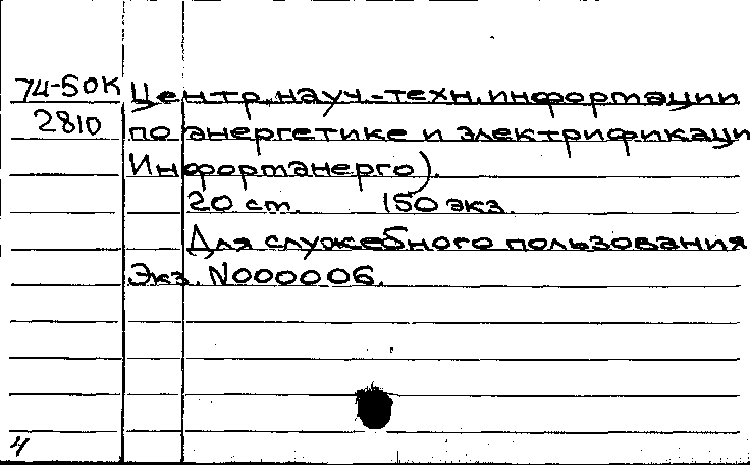 74-50К Центр. науч.-техн. информации
2810 по энергетике и электрификаци
Информэнерго).
20 ст. 150 экз.
Для служебного пользования
Экз. N000006.
4